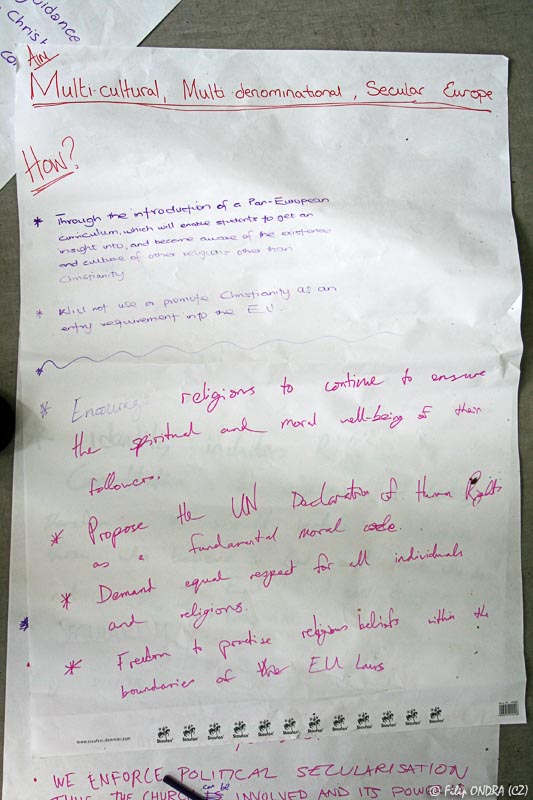 uidance
Christ
co
AIM
Multi-cultural, Multi denominational, Secular Europe
HOW?
* Through the introduction of a Pan-European
curriculum, which will enable students to get an
insight into, and become aware of the existence
and culture of other religions other than
Christianity
* Will not use or promote Christianity as an
entry requirement into the EU.
*
* Encourage religions to continue to ensure
the spiritual and moral well-being of their
followers.
* Propose the UN Declaration of Human Rights
as a fundamental moral code.
* Demand equal respect for all individuals
and religions.
* Freedom to practise religious beliefs within the
boundaries of the EU Laws
www.staufen-demmler.com
Staufen Staufen Staufen Staufen Staufen Staufen Staufen Staufen Staufen Staufen Staufen Staufen
• WE ENFORCE POLITICAL SECULARISATION
can be
THUS THE CHURCH IS INVOLVED AND ITS POWER
© Filip ONDRA (CZ)